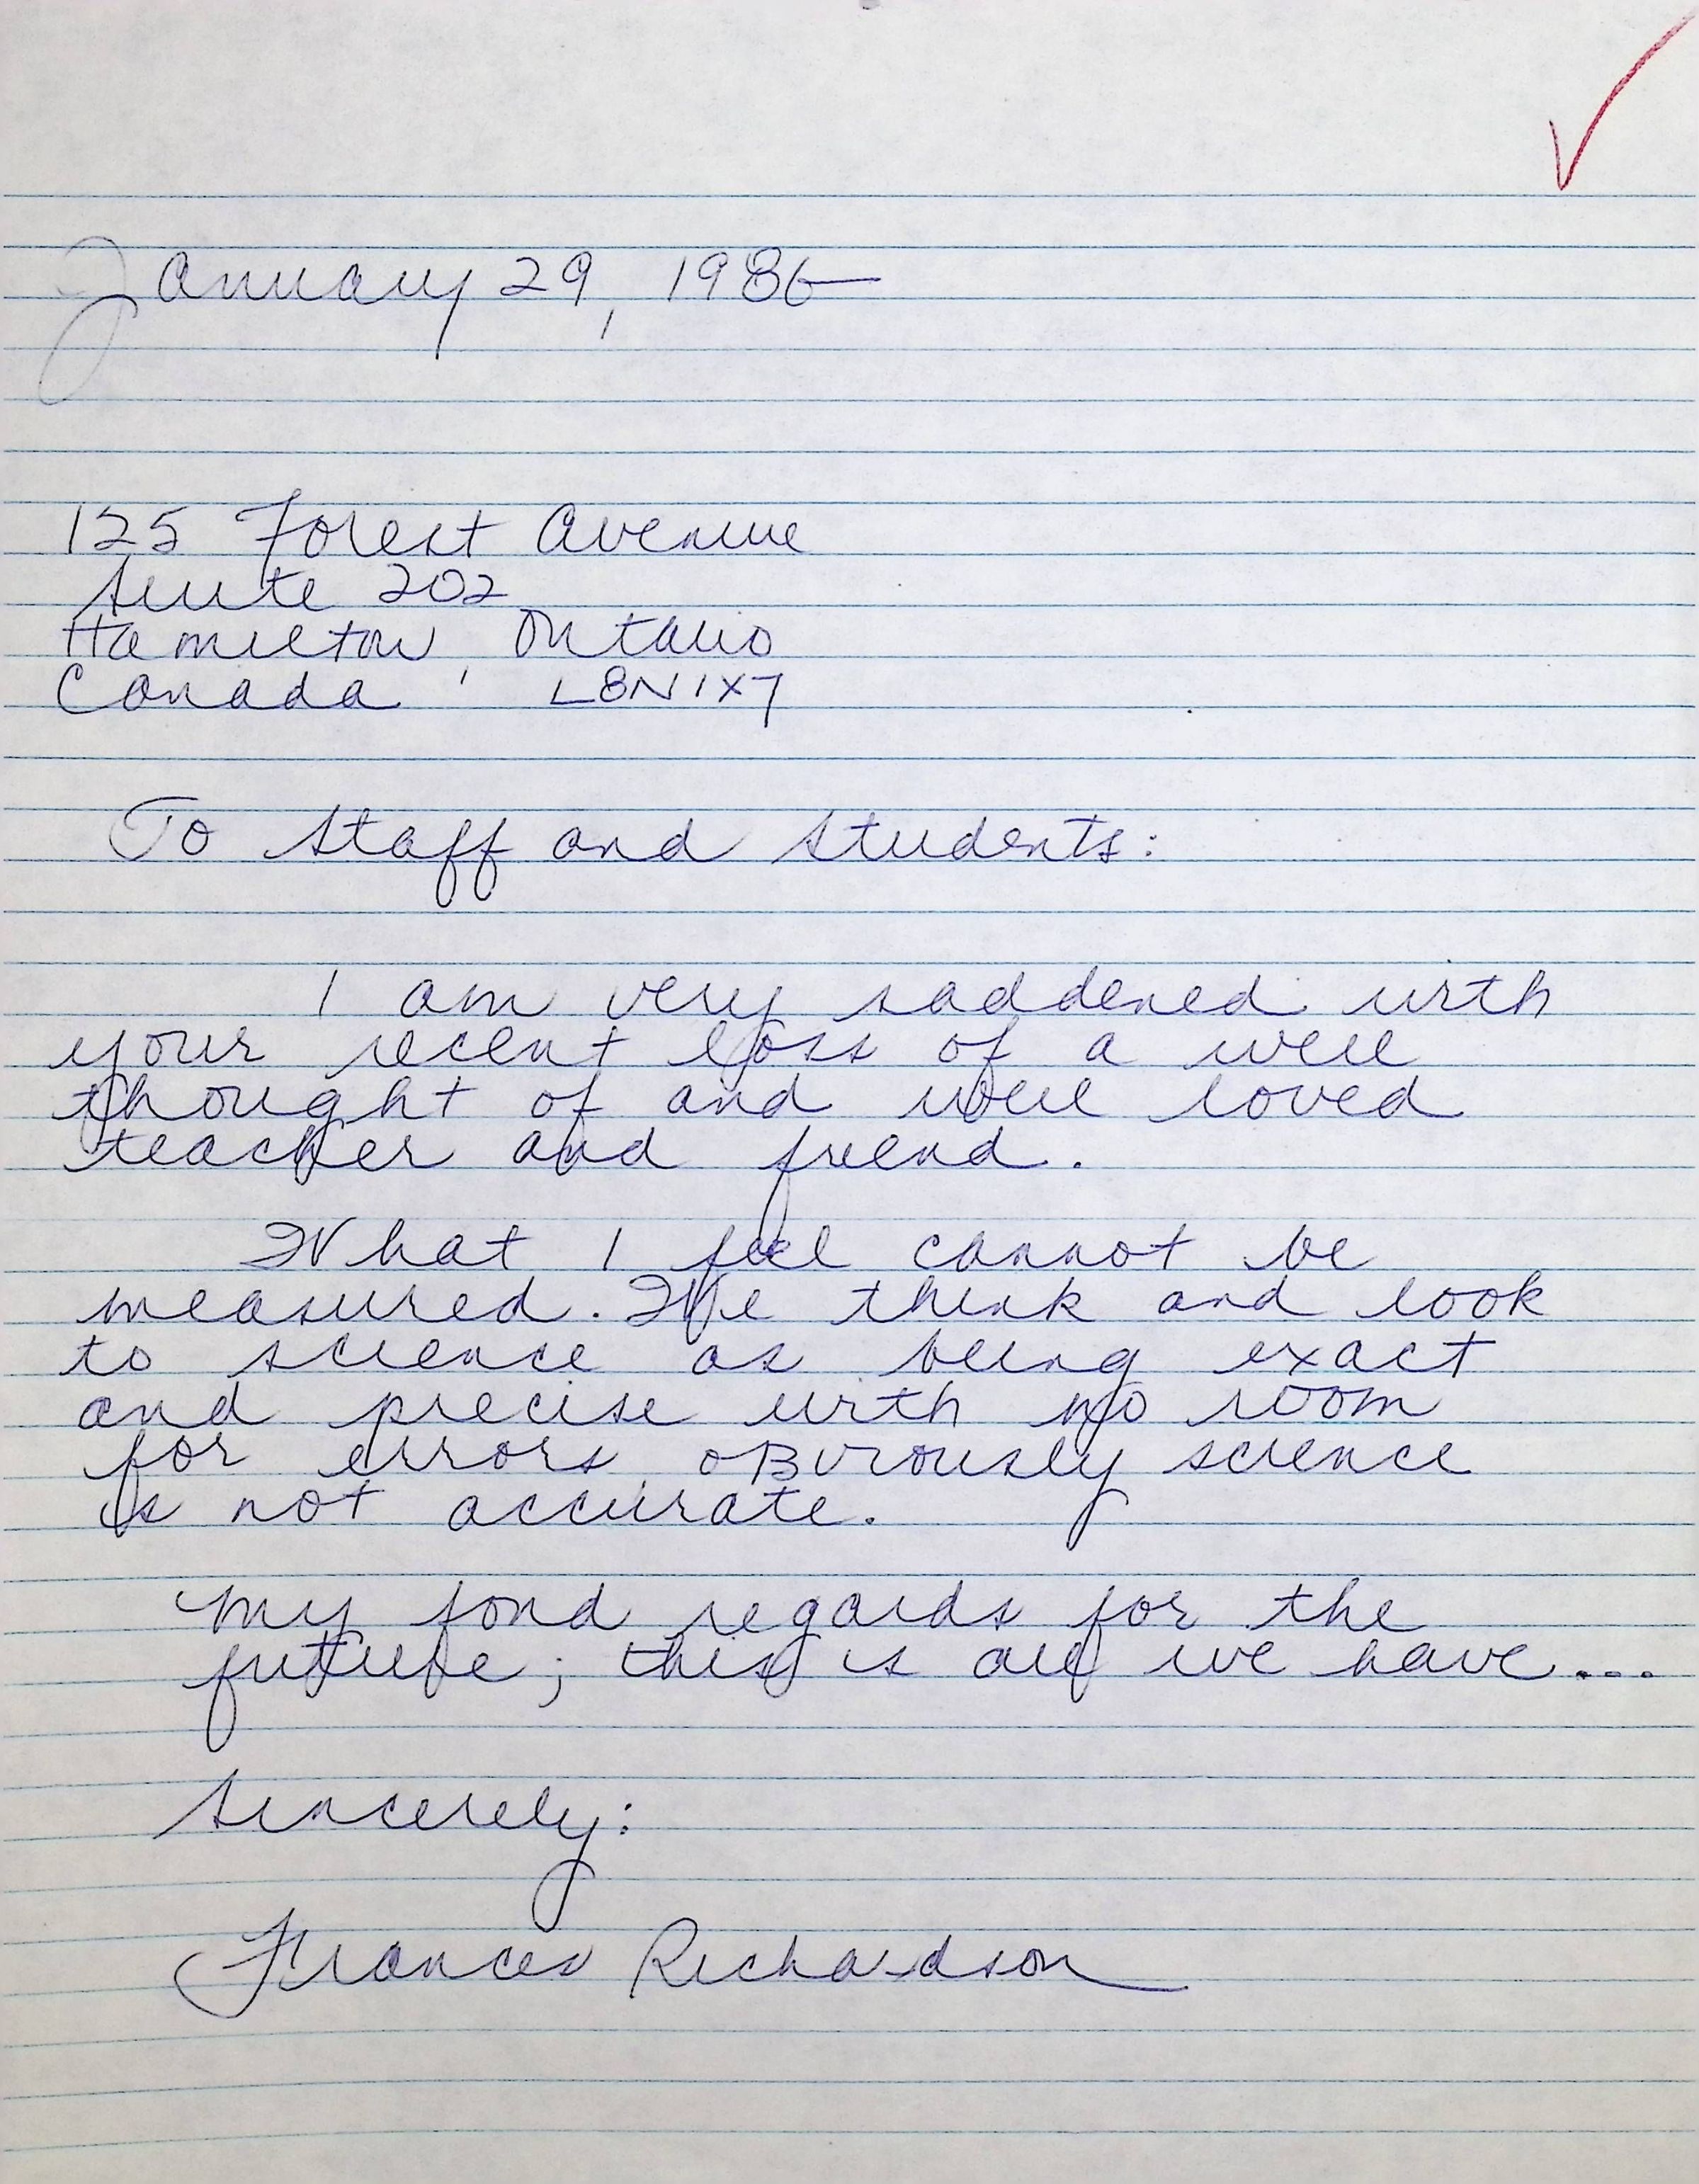 January 29, 1986
125 Forest Avenue
Suite 202
Hamilton, Ontario
Canada L8N 1X7
To Staff and Students:
I am very saddened with
your recent loss of a well
thought of and well loved
teacher and friend.
What I feel cannot be
measured. We think and look
to science as being exact
and precise with no room
for errors, oBviously science
is not accurate.
My fond regards for the
future; this is all we have...
Sincerely:
Frances Richardson